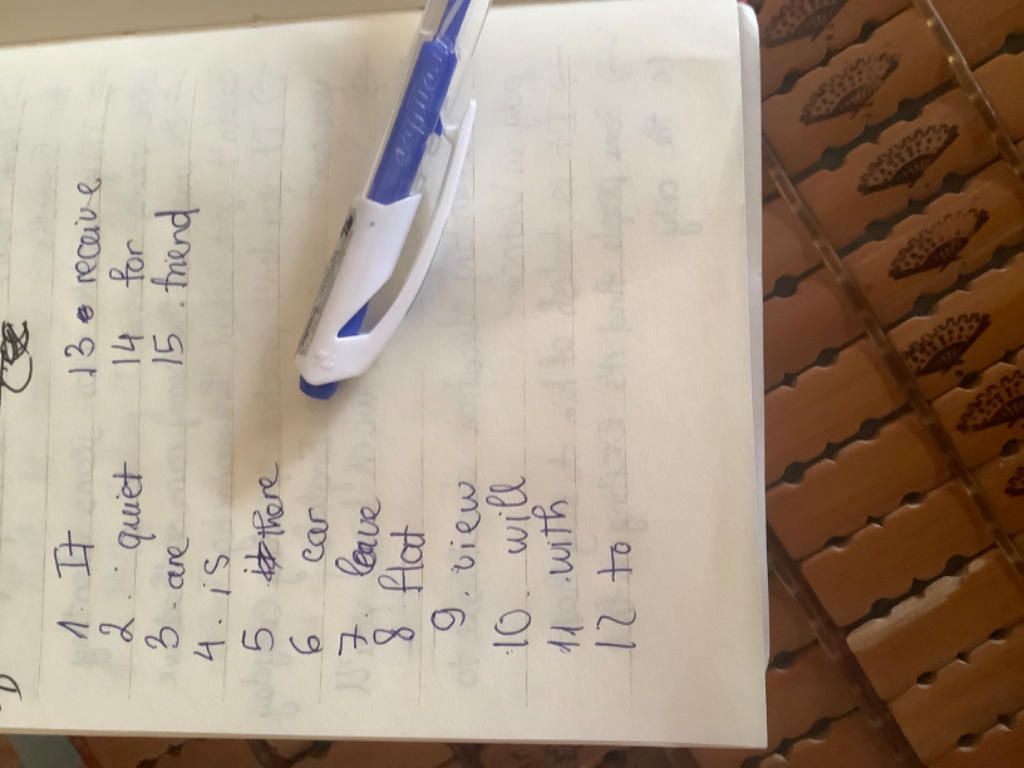 1. It
2. quiet
3. are
4. is
5 there
6 car
7. leave
8 flat
9. view
10. will
11. with
12 to
13 receive
14 for
15. friend